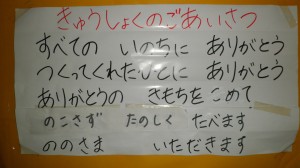 きゅうしょくのごあいさつ
すべての いのちに ありがとう
つくってくれたひとに ありがとう
ありがとうの きもちを こめて
のこさず たのしく たべます
ののさま いただきます